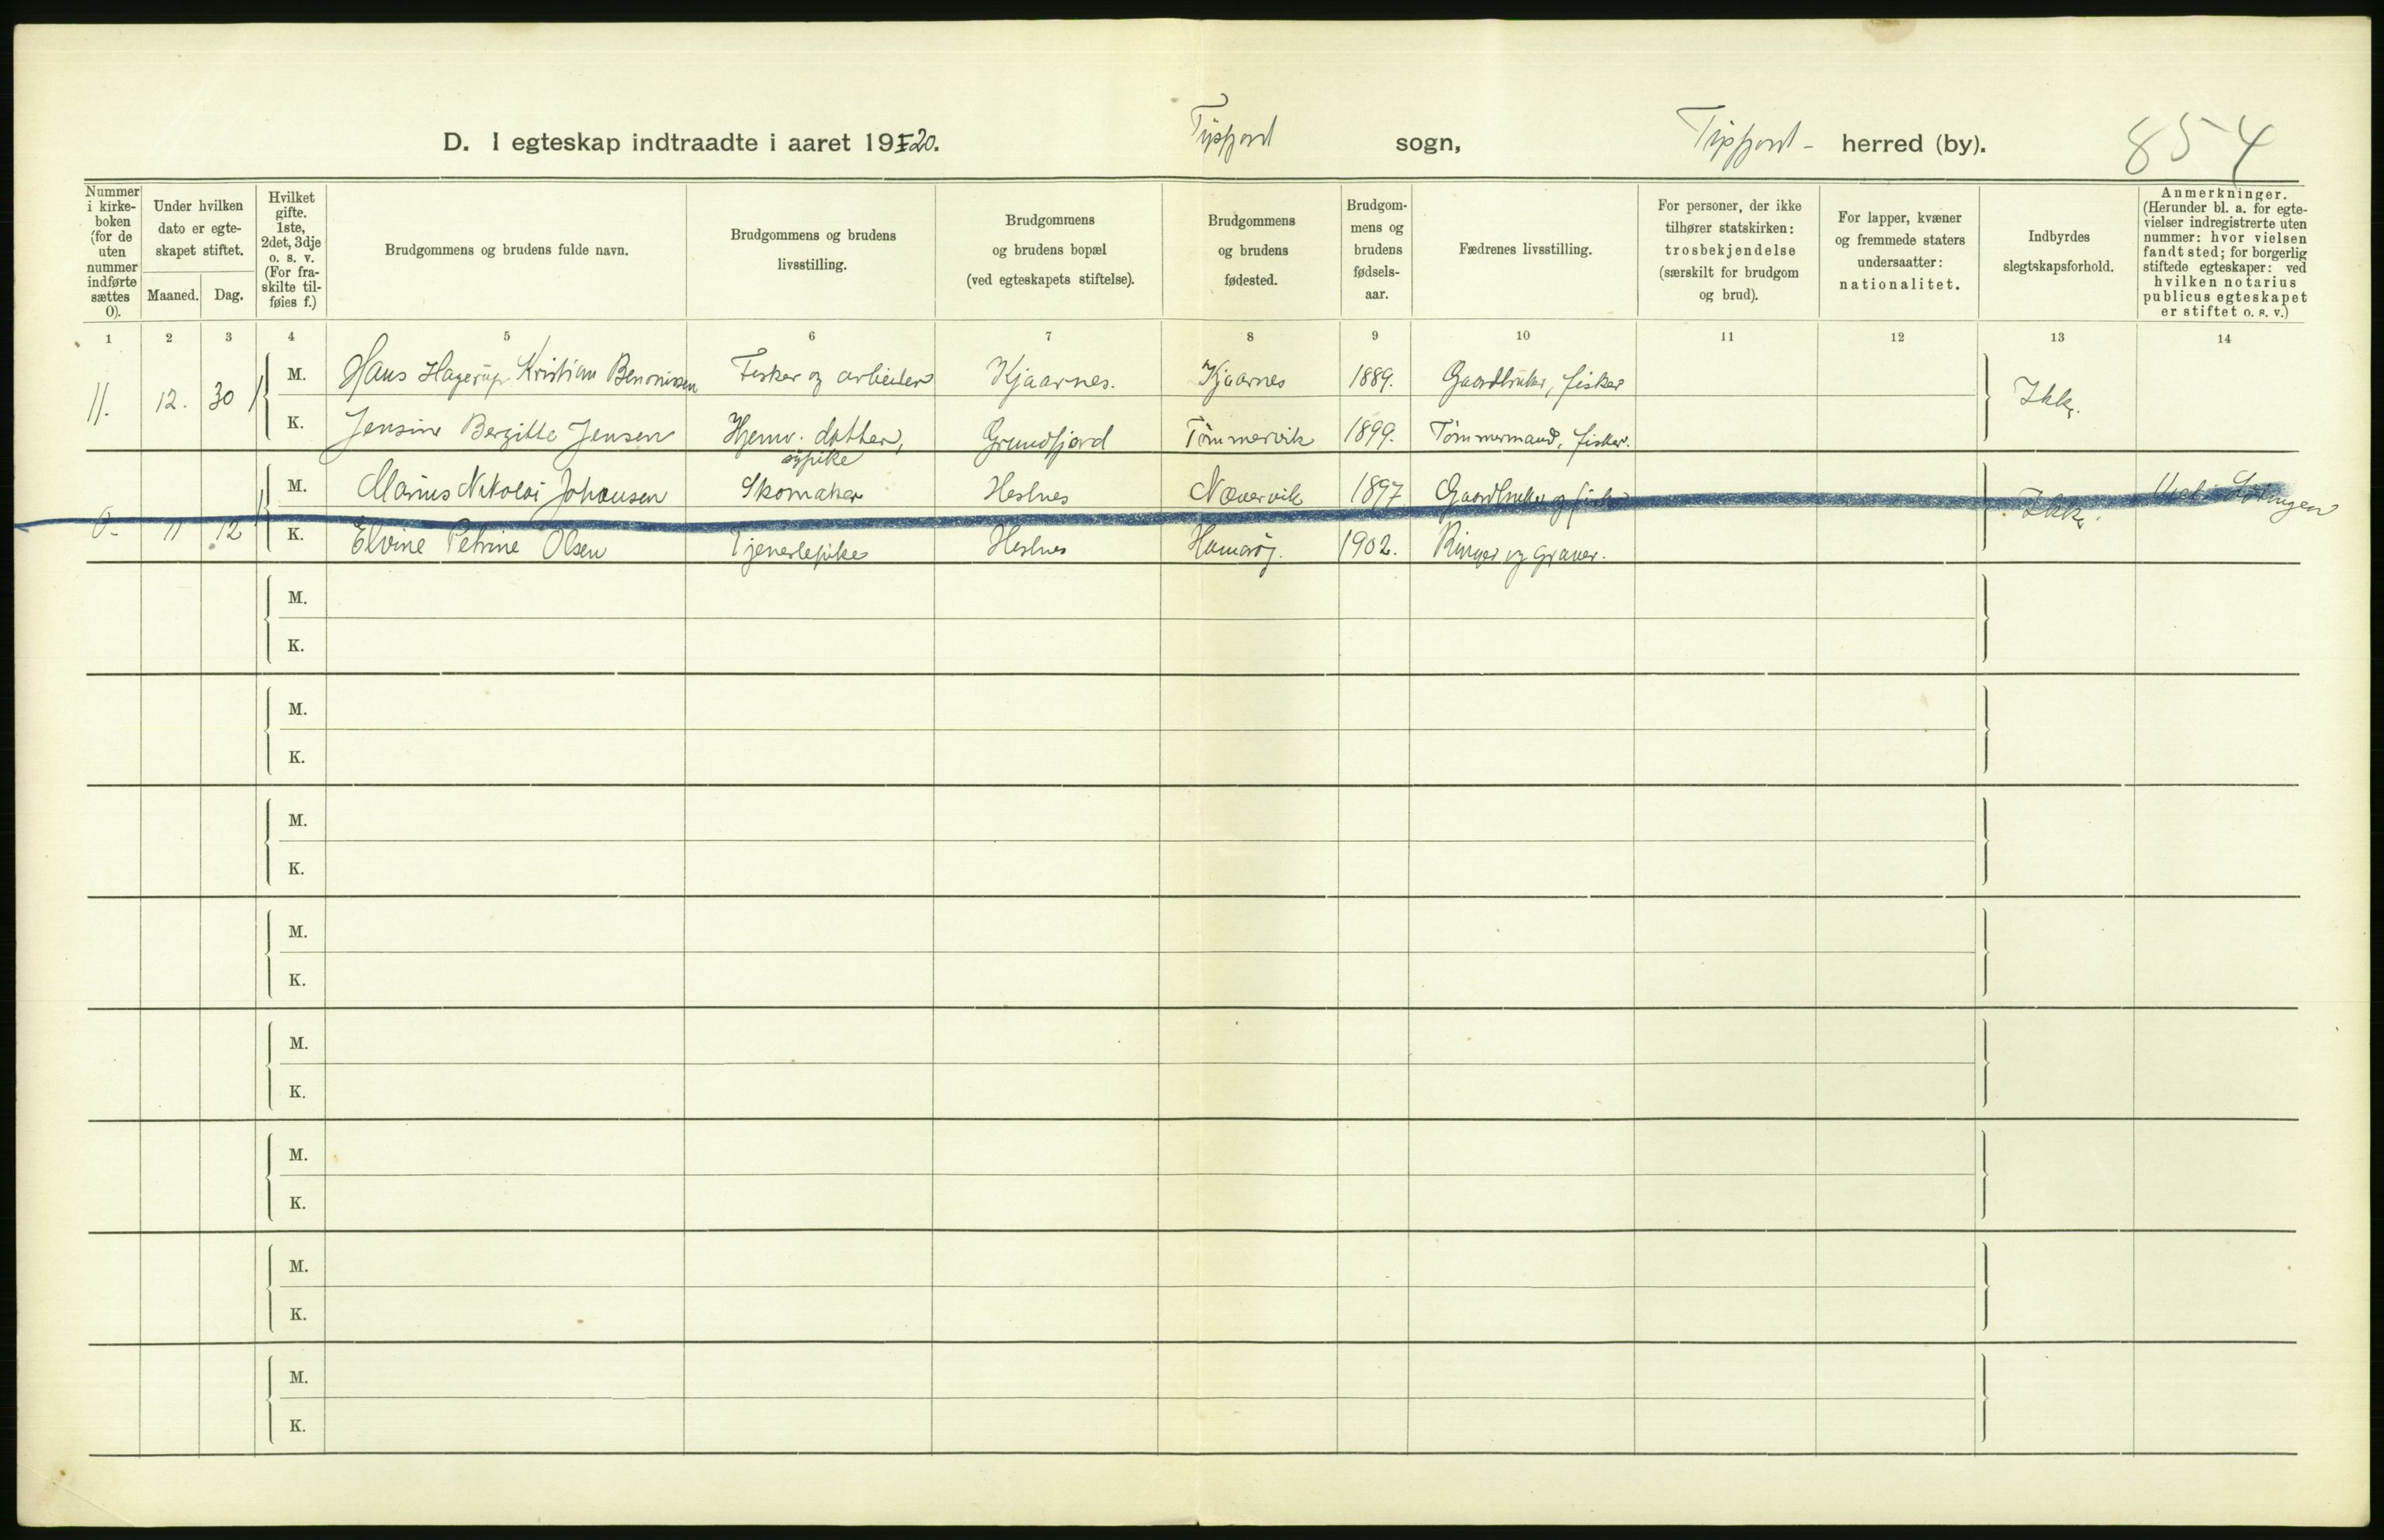 D. I egteskap indtraadte i aaret 19120. Tysfjord sogn, Tysfjord- herred (by). 854
Nummer i kirke-boken (for de uten nummer indførte sættes 0).
Under hvilken dato er egte-skapet stiftet.
Maaned. Dag.
Hvilket gifte. 1ste, 2det, 3dje o. s. v. (For fra-skilte til-føies f.)
Brudgommens og brudens fulde navn.
Brudgommens og brudens livsstilling.
Brudgommens og brudens bopæl (ved egteskapets stiftelse).
Brudgommens og brudens fødested.
Brudgom-mens og brudens fødsels-aar.
Fædrenes livsstilling.
For personer, der ikke tilhører statskirken: trosbekjendelse (særskilt for brudgom og brud).
For lapper, kvæner og fremmede staters undersaatter: nationalitet.
Indbyrdes slegtskapsforhold.
Anmerkninger. (Herunder bl. a. for egte-vielser indregistrerte uten nummer: hvor vielsen fandt sted; for borgerlig stiftede egteskaper: ved hvilken notarius publicus egteskapet er stiftet o. s. v.)
1 2 3 4 5 6 7 8 9 10 11 12 13 14
11. 12. 30 1 M. Hans Hagerup Kristian Benonisen Fisker og arbeider Kjaarnes. Kjaarnes 1889. Gaardbruker, fisker Ikke.
K. Jensine Bergitte Jensen Hjemv. datter, sypike Grundfjord Tømmervik 1899. Tømmermand, fisker.
0. 11 12 1 M. Marius Nikolai Johansen Skomaker Heslnes Nævervik 1897 Gaardbruker og fisker Ikke. Lødingen
K. Elvine Petrine Olsen Tjenerlepike Heslnes Hamarøy. 1902. Ringer og graver.
M.
K.
M.
K.
M.
K.
M.
K.
M.
K.
M.
K.
M.
K.
M.
K.